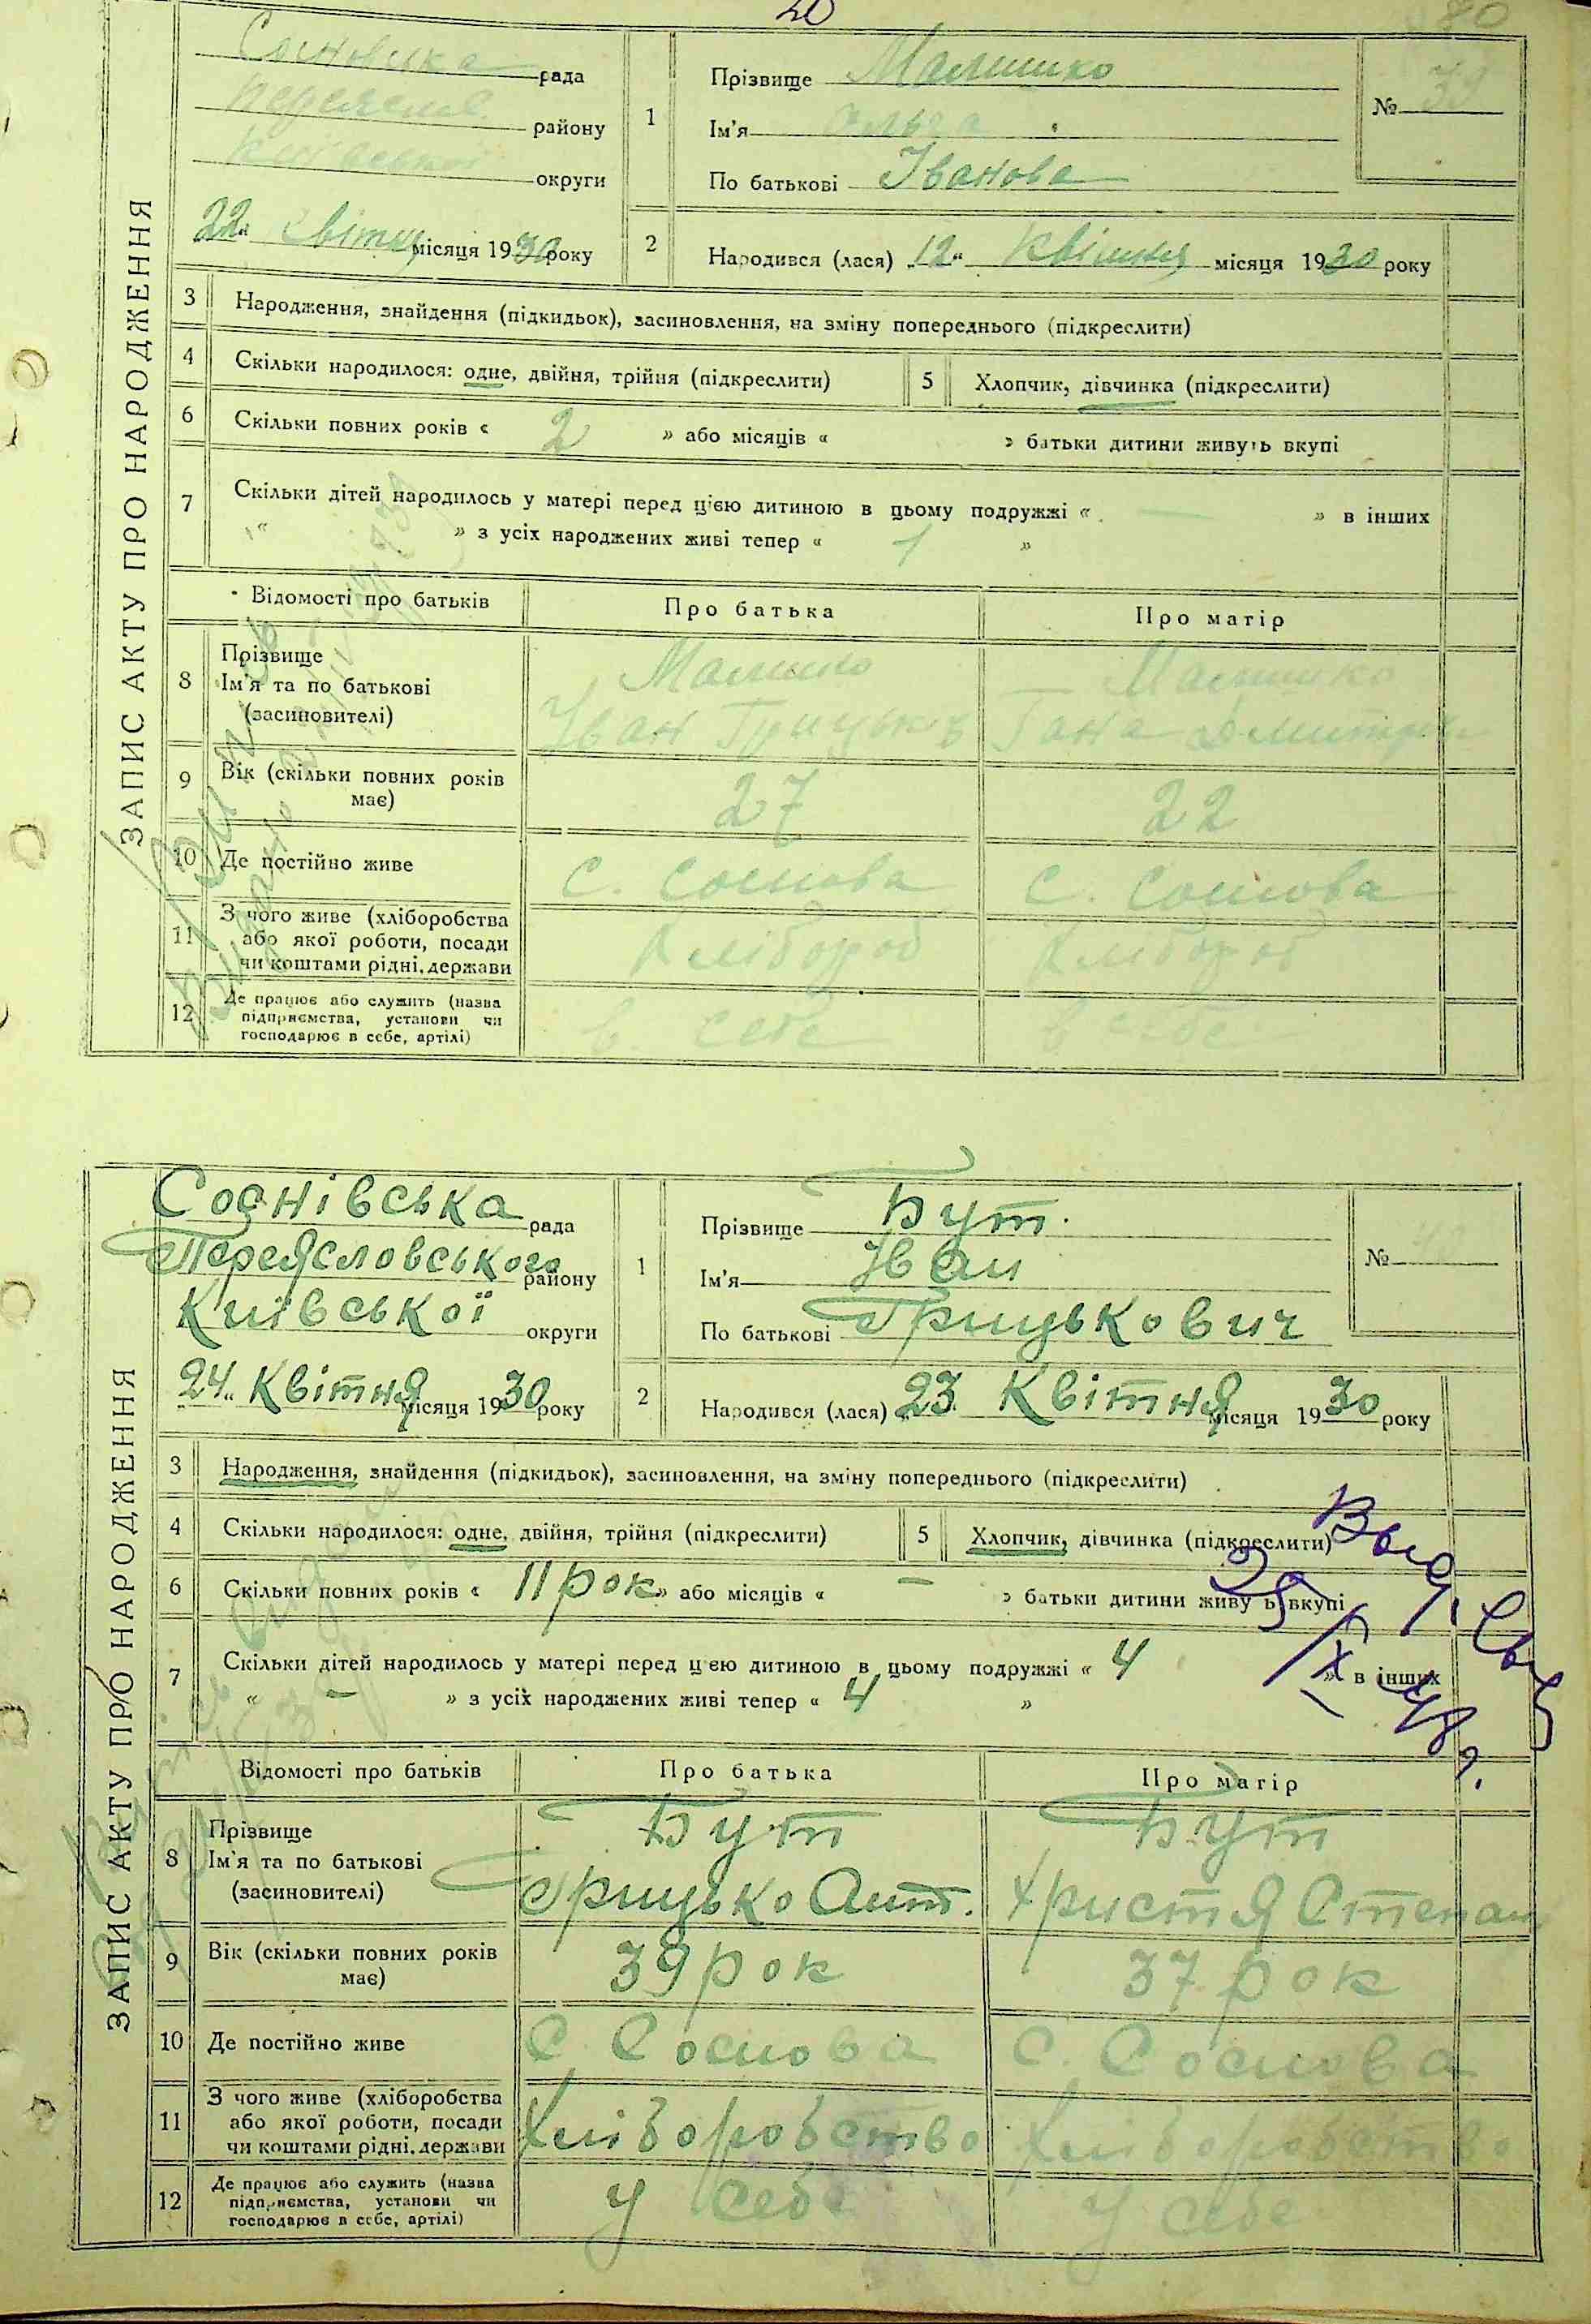 20
80
ЗАПИС АКТУ ПРО НАРОДЖЕННЯ
рада
району
округи
22 " квітня місяця 1930 року
1
Прізвище Малишко
Ім'я Ольга
По батькові Іванова
№ 39
2
Народився (лася) „12" Квітня місяця 1930 року
3 Народження, знайдення (підкидьок), засиновлення, на зміну попереднього (підкреслити)
4 Скільки народилося: одне, двійня, трійня (підкреслити)
5 Хлопчик, дівчинка (підкреслити)
6 Скільки повних років « 2 » або місяців « » батьки дитини живуть вкупі
7 Скільки дітей народилось у матері перед цією дитиною в цьому подружжі « — » в інших
„ " » з усіх народжених живі тепер « 1 »
Відомості про батьків Про батька Про матір
8 Прізвище
Ім'я та по батькові
(засиновителі)
Малишко
Іван Грицьків
Малишко
Гана Дмитрів
9 Вік (скільки повних років
має)
27 22
10 Де постійно живе с. Соснова с. Соснова
11 З чого живе (хліборобства
або якої роботи, посади
чи коштами рідні, держави
Хлібороб Хлібороб
12 Де працює або служить (назва
підприємства, установи чи
господарює в себе, артілі)
в себе в себе
ЗАПИС АКТУ ПРО НАРОДЖЕННЯ
Соснівська рада
Переясловського району
Київської округи
24 " Квітня місяця 1930 року
1
Прізвище Бут.
Ім'я Іван
По батькові Грицькович
№
2
Народився (лася) „23 Квітня місяця 1930 року
3 Народження, знайдення (підкидьок), засиновлення, на зміну попереднього (підкреслити)
4 Скільки народилося: одне, двійня, трійня (підкреслити)
5 Хлопчик, дівчинка (підкреслити)
6 Скільки повних років « 11 рок » або місяців « — » батьки дитини живуть вкупі
7 Скільки дітей народилось у матері перед цією дитиною в цьому подружжі « 4 » в інших
« — » з усіх народжених живі тепер « 4 »
Выд. Св
25/X 48 г.
Відомості про батьків Про батька Про матір
8 Прізвище
Ім'я та по батькові
(засиновителі)
Бут
Грицько Ант.
Бут
Христя Степан
9 Вік (скільки повних років
має)
39 рок 37 рок
10 Де постійно живе С. Соснова С. Соснова
11 З чого живе (хліборобства
або якої роботи, посади
чи коштами рідні, держави
Хліборобство Хліборобство
12 Де працює або служить (назва
підприємства, установи чи
господарює в себе, артілі)
у себе у себе